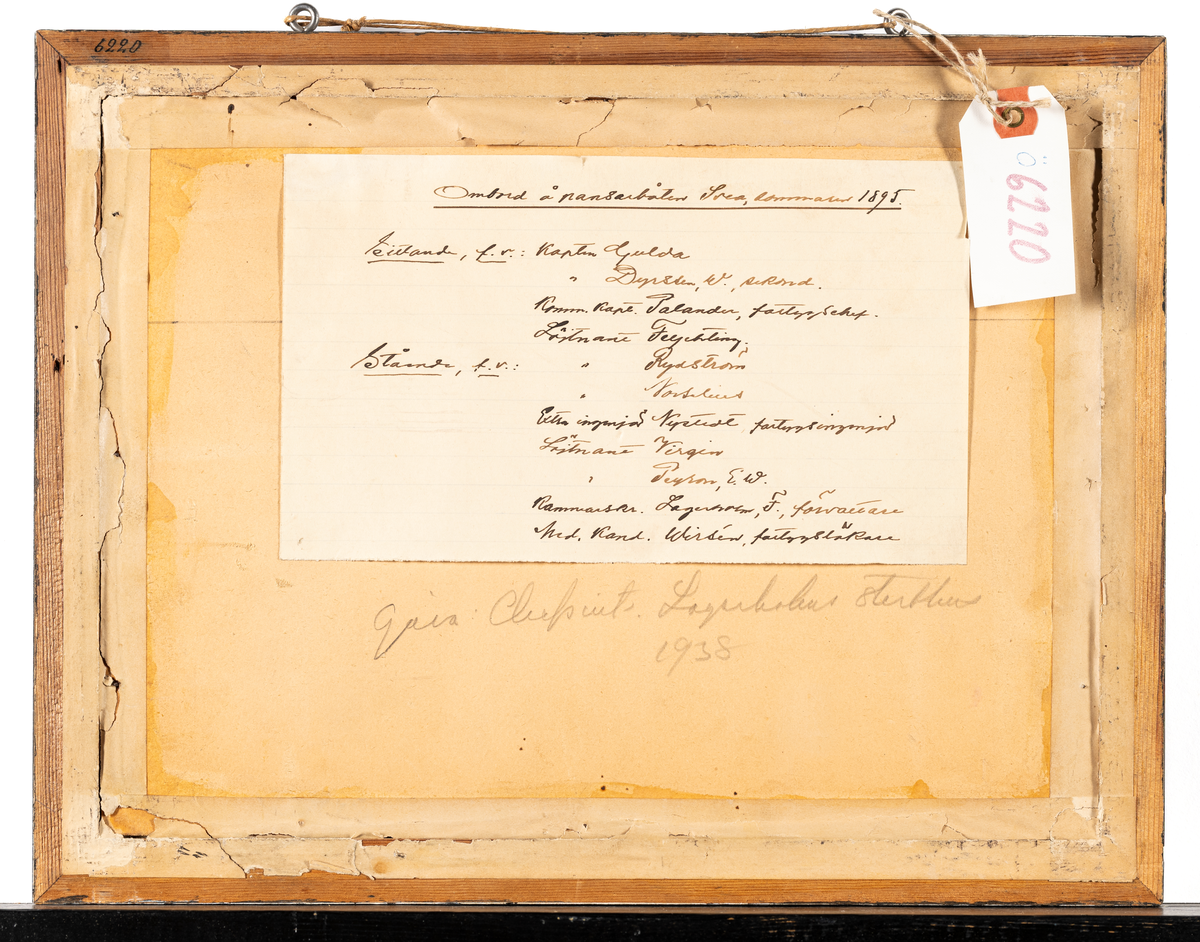 6220
ö 6220
Ombord å pansarbåten Svea, sommaren 1895.
Sittande, f. v.: Kapten Gulda
" Dyrssen, W., sekond.
Komm. Kapt. Palander, fartygschef.
Löjtnant Feychting,
Stående, f. v.: " Rydström
" Norselius
Extra ingenjör Nystedt, fartygsingenjör
Löjtnant Virgin
" Peyron, E. W.
Kammarskr. Lagerholm, F., förvaltare
Med. Kand. Wirsén, fartygsläkare
Gåva Lagerholms sterbhus
1938